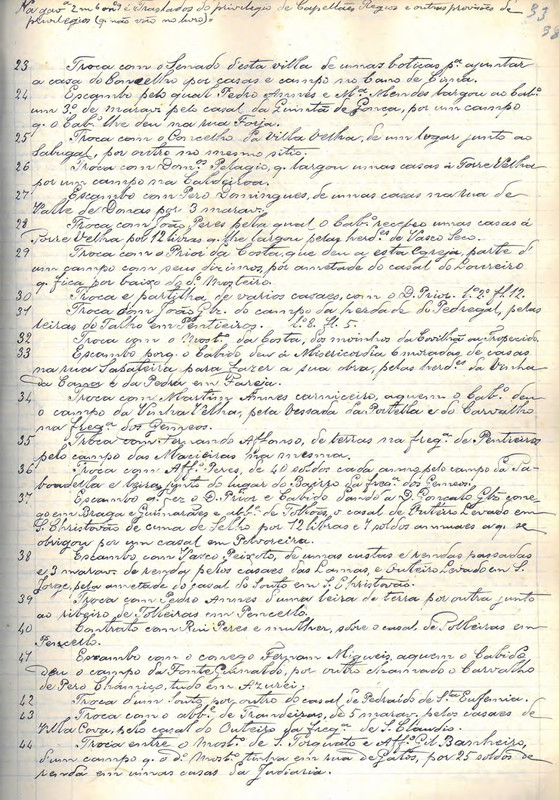 Na gav.ª 2 m 6 on.º 3 = Traslados do privilegio de Capellães Regios e outras provisões de
privilegios (q. não vão no livro).
33
38
23 Troca com o Senado d'esta villa de umas boticas p.ª ajuntar
a casa do Concelho por casas e campo no Cano de Cima.
24 Escambo pelo qual Pedro Annes e M.ª Mendes largou ao Cab.º
um 3.º de marav. pelo casal da Quintã de Gonça, por um campo
q. o Cab.º lhe deu na rua Forja.
25 Troca com o Concelho da Villa Velha, de um logar junto ao
Sabugal, por outro no mesmo sitio.
26 Troca com Dom.ºs Pelagio, q. largou umas casas á Torre Velha
por um campo na Caldeiroa.
27 Escambo com Pero Domingues, de umas casas na rua de
Valle de Donas por 3 marav.
28 Troca com João Peres pela qual o Cab.º recebeu umas casas á
Torre Velha por 12 livras q. lhe largou pelas herd.es de Vasco Seco.
29 Troca com o Prior da Costa, que deu a esta Egreja parte d
um campo com seus dizimos, por ametade do casal do Loureiro
q. fica por baixo do d.º Mosteiro.
30 Troca e partilha de varios casaes, com o D. Prior. L.º 2.º fl. 12.
31 Troca com João Glz. do campo da herdade do Pedregal, pelas
leiras do Talho em Pentieiros. L.º 8. fl. 5.
32 Troca com o Most.º da Costa, dos moinhos da Covilhã
33 Escambo porq. o Cabido deu á Misericordia 6 moradas de casas
na rua Sapateira para fazer a sua obra, pelas herd.es da Venda
da e da Pedra em Fareja.
34 Troca com Martim Annes carniceiro, a quem o Cab.º deu
o campo da Vinha Velha, pela vessada da Portella e do Carvalho
na freg.ª dos Gemeos.
35 Troca com Fernando Affonso, de terras na freg.ª de Pentieiros
pelo campo das Macieiras na mesma.
36 Troca com Aff.º Peres, de 40 soldos cada anno pelo campo da Ta-
boadella e leira, junto do lugar do Bairro da freg.ª dos Gemeos.
37 Escambo q. fez o D. Prior e Cabido dando a D. Gonçalo Glz cone-
go em Braga e Guimarães e abb.e de Tolhões, o casal de Outeiro Levado em
S. Christovão de cima de Selho por 12 libras e 7 soldos annuaes a q. se
obrigou por um casal em Polvoreira.
38 Escambo com Vasco Peixoto, de umas custas e rendas passadas
e 3 marav. de renda, pelos casaes das Lamas, e Outeiro Levado em S.
Jorge, pela ametade do casal do Souto em S. Christovão.
39 Troca com Pedro Annes d'uma leira de terra por outra junto
ao ribeiro de Tolheiras em Pencello.
40 Contrato com Rui Peres e mulher, sobre o casal de Polheiras em
Pencello.
41 Escambo com o conego Fernam Migueis, a quem o Cabido
deu o campo da Fonte Guinaldo, por outro chamado o Carvalho
de Pero Chamiço, tudo em Azurei.
42 Troca d'um Souto, por outro do casal de Pedraído de S.ta Eufemia.
43 Troca com o abb.e de Trandeiras, de 5 marav. pelos casaes de
Villa Cova, pelo casal do Outeiro da freg.ª de S. Claudio.
44 Troca entre o Most.º de S. Torquato e Aff.º Gil Banheiro,
d'um campo q. o d.º Most.º tinha em rua de Gatos, por 25 soldos de
renda em umas casas da Judiaria.